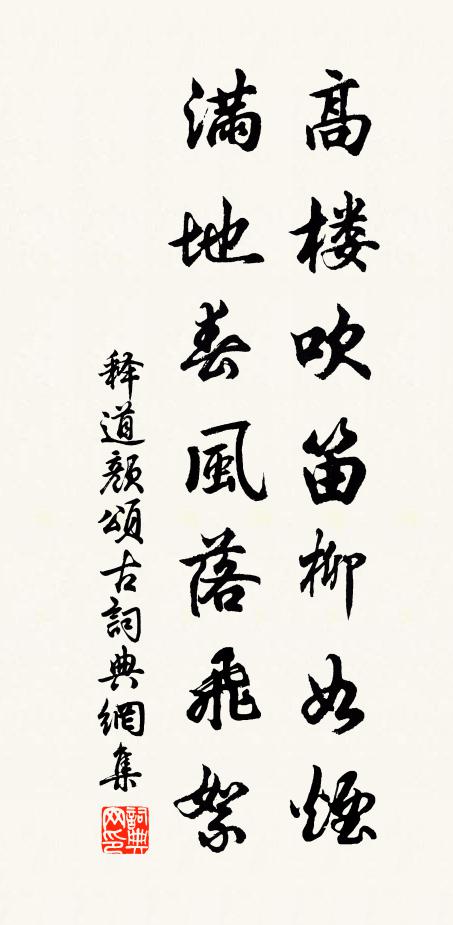 高楼吹笛柳如煙
滿地春風落飛絮
释道颜頌古詞典網集
詞典網印